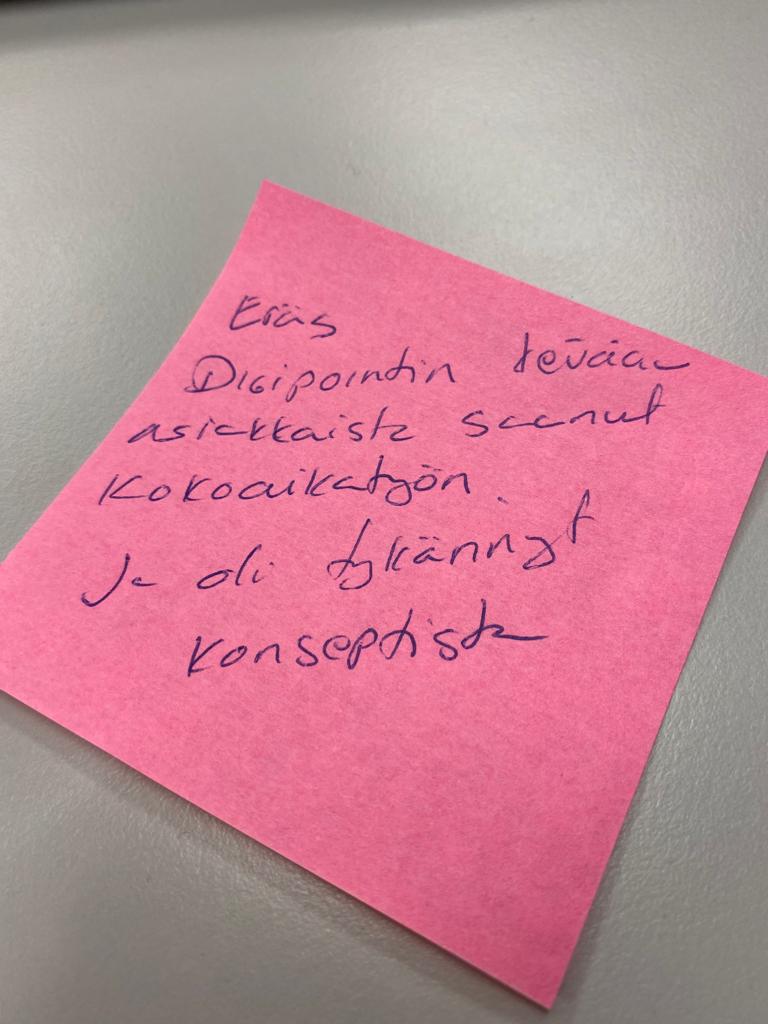 Eräs
Digipointin
asiakkaista saanut
Kokoaikatyön.
Ja oli tykännyt
konseptista